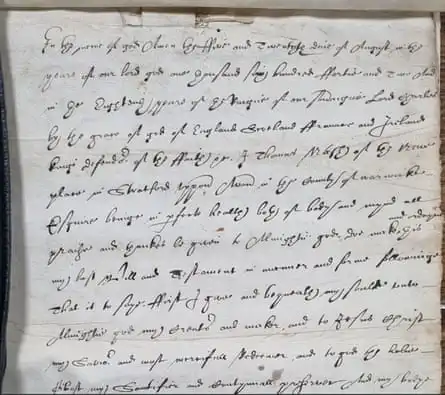 In the name of god Amen the ffive and Twentyth daie of August in the
yeare of our lord god one thousand six hundred ffortie and two And
in the Eighteenth yeare of the Raigne of our Soveraigne Lord Charles
by the grace of god of England Scotland ffraunce and Ireland
kinge defendor of the ffaith &c. I Thomas Nash of the Newe
place in Stratford uppon Avon in the County of warwicke
Esquire beinge in perfect health both of body and mynd all
praise and thankes be given to Almightie god, doe make this
and ordayne
my last will and Testament in manner and forme followinge
That is to saye. ffirst I give and bequeath my soule unto
Almightie god my Creator and maker, and to Jesus Christ
my Savior and most mercifull Redeemer, and to god the holie
Ghost my Sanctifier and preserver And my bodye